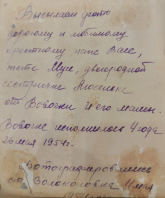 Высылаем фото
дорогому и любимому
крестному папе Васе,
тете Мусе, двоюродной
сестричке Люсеньке
от Вовочки и его мамы.
Вовочке исполнилось 4 года
26 мая 1954 г.
Фотографировались
в Волоконовке